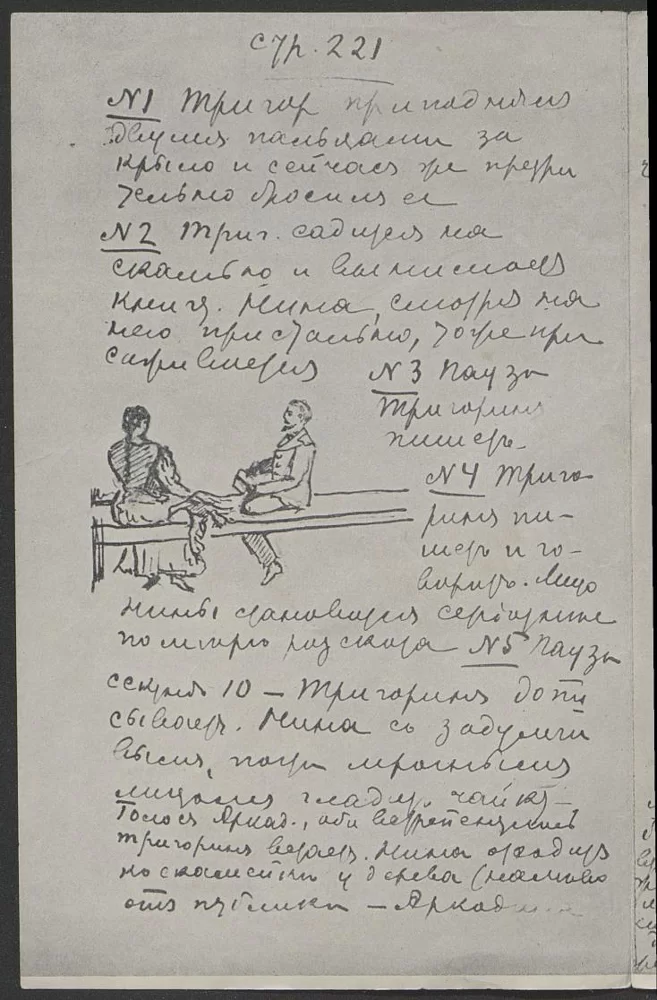 стр. 221
№1 Тригор приподнялъ
двумя пальцами за
крыло и сейчасъ же презри
тельно бросилъ ее
№2 Триг. садится на
скамью и вынимаетъ
книгу. Нина, смотря на
него пристально, тоже при
саживается
№3 Пауза
Тригоринъ
пишетъ
№4 Триго
ринъ пи-
шетъ и го-
воритъ. Лицо
Нины становится серьознѣе
по мѣрѣ разсказа №5 Пауза
секундъ 10 – Тригоринъ допи
сываетъ. Нина съ задумчи
вымъ, почти мрачнымъ
лицомъ гладитъ чайку –
Голосъ Аркад., оба
Тригоринъ встаетъ. Нина отходитъ
къ скамейкѣ у дерева (налѣво
отъ публики – Аркад